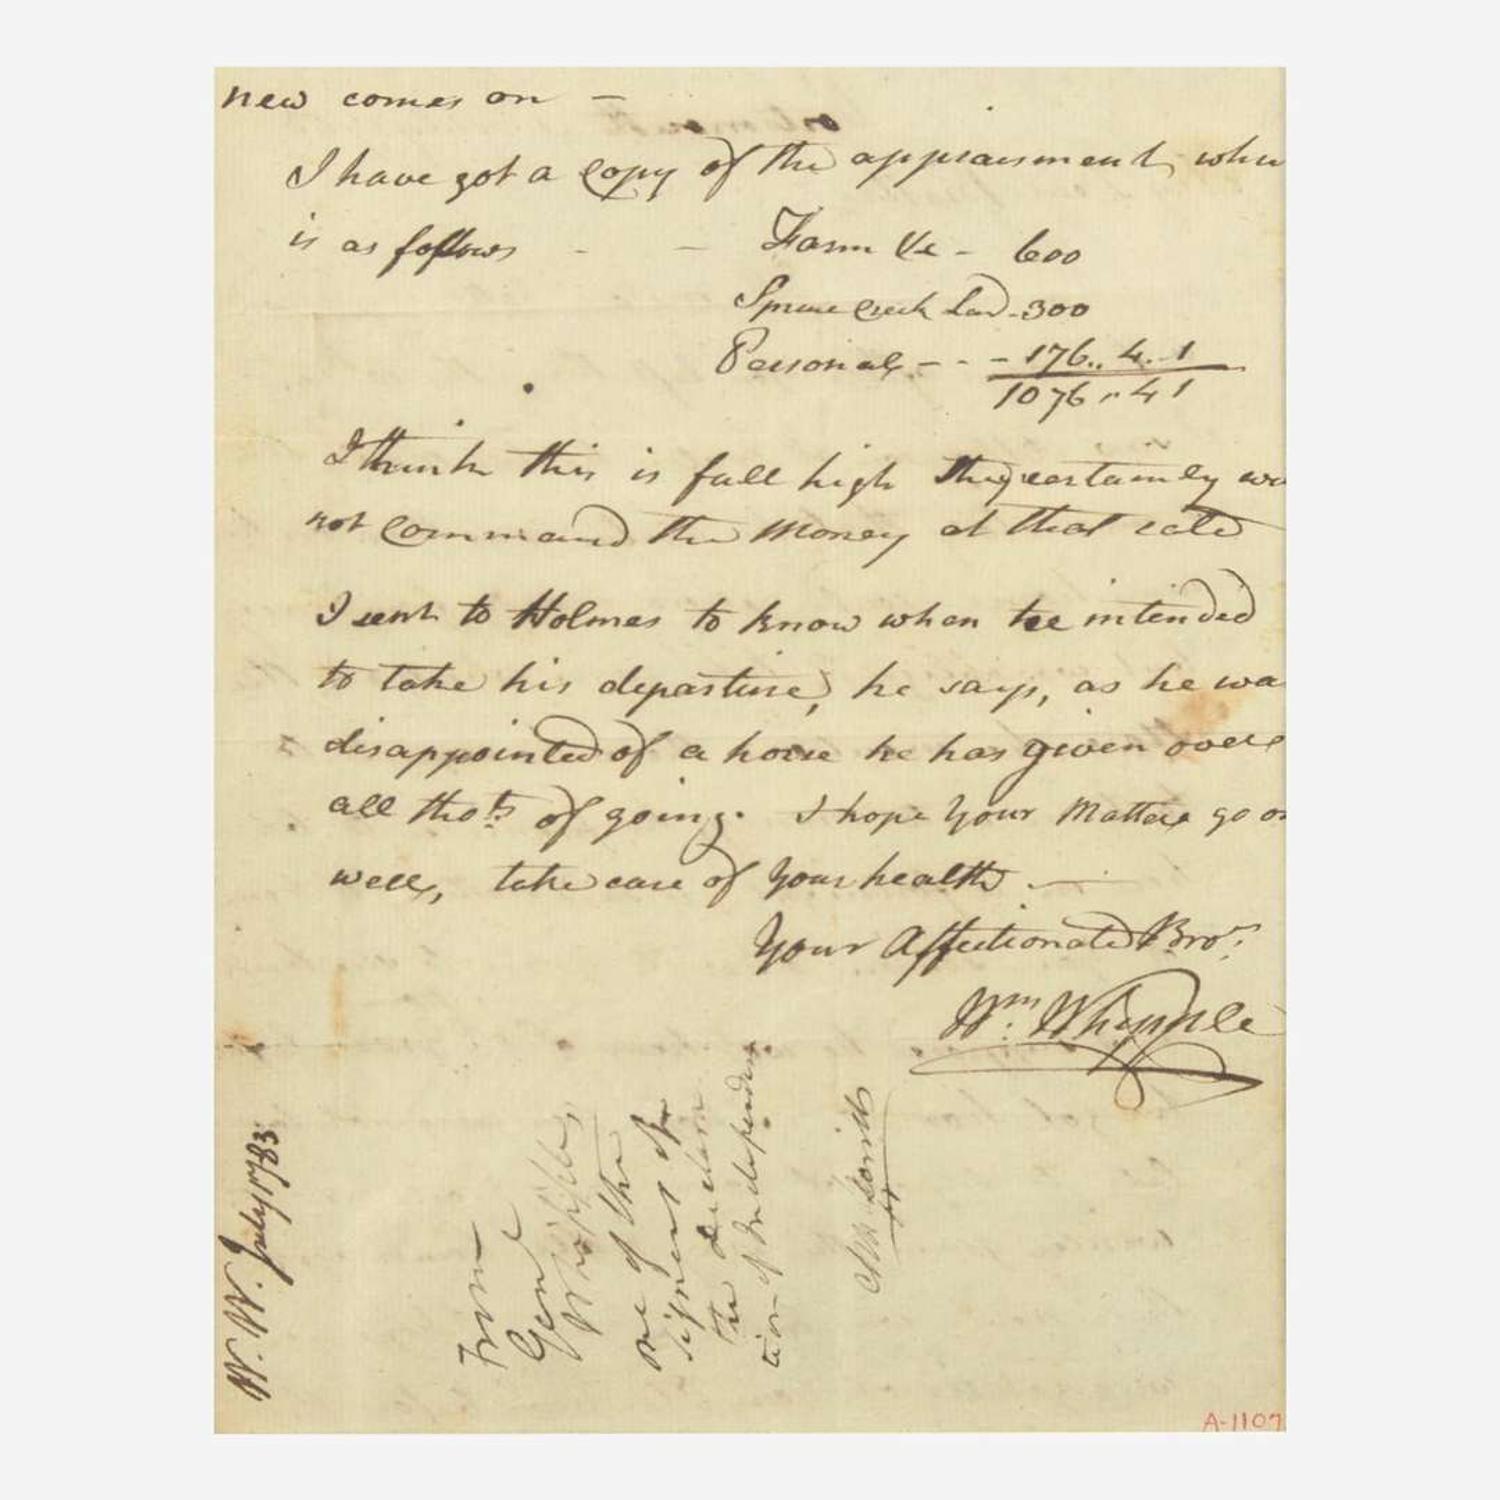 new comes on —
I have got a Copy of the appraisment whic
is as follows - — Farm &c - 600
Spruce Creek Land - 300
Personal - - - 176.. 4.. 1
1076 .. 4 1
I think this is full high they certainly wo
not Command the Money at that rate
I sent to Holmes to know when he intended
to take his departure, he says, as he wa
disappointed of a horse he has given over
all thots of going. I hope Your Matters go on
well, take care of Your health. —
Your Affectionate Bror.
Wm. Whipple
W. W. July 1783
From
Genl
Whipple
one of the
signers of
the declara
tion of Independence
A-1107